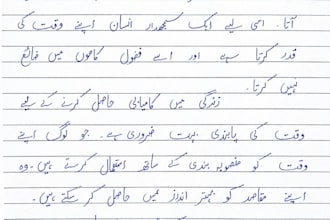 آتا۔ اسی لیے ایک سمجھدار انسان اپنے وقت کی
قدر کرتا ہے اور اسے فضول کاموں میں ضائع
نہیں کرتا۔
زندگی میں کامیابی حاصل کرنے کے لیے
وقت کی پابندی بہت ضروری ہے۔ جو لوگ اپنے
وقت کو منصوبہ بندی کے ساتھ استعمال کرتے ہیں۔ وہ
اپنے مقاصد کو بہتر انداز میں حاصل کر سکتے ہیں۔